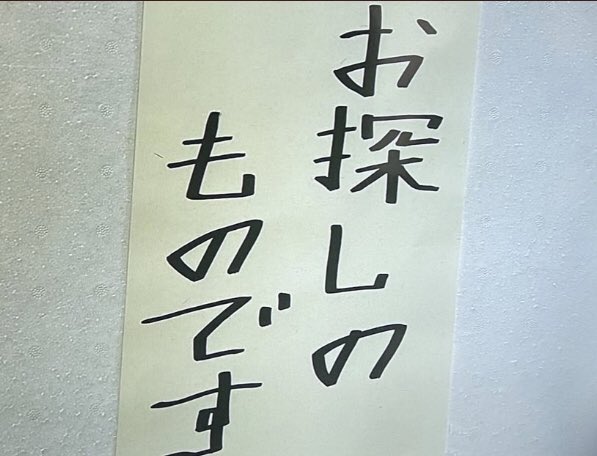 お探しの
ものです